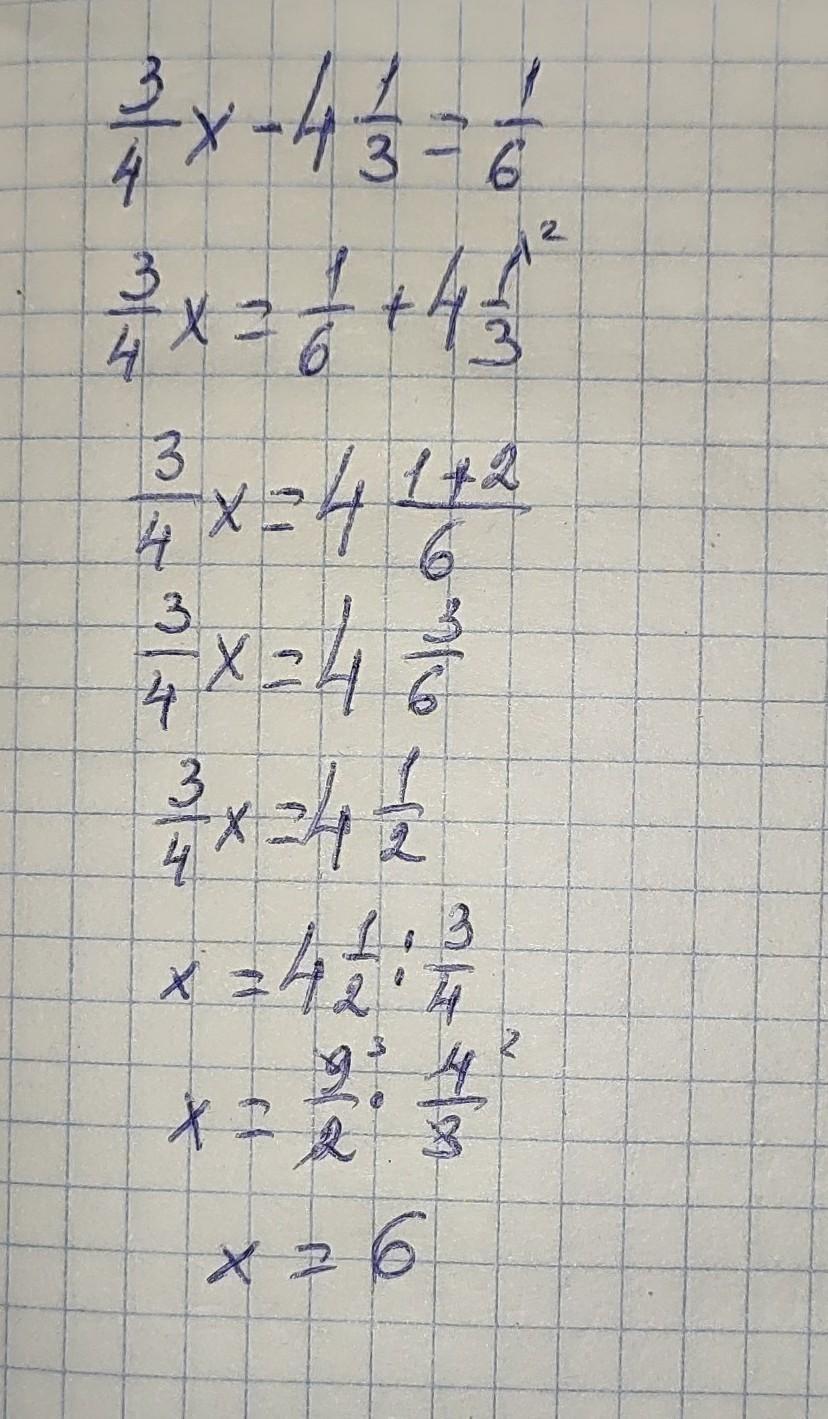 3/4 x - 4 1/3 = 1/6
3/4 x = 1/6 + 4 1/3 \2
3/4 x = 4 (1+2)/6
3/4 x = 4 3/6
3/4 x = 4 1/2
x = 4 1/2 : 3/4
x = 9³/2 · 4²/3
x = 6